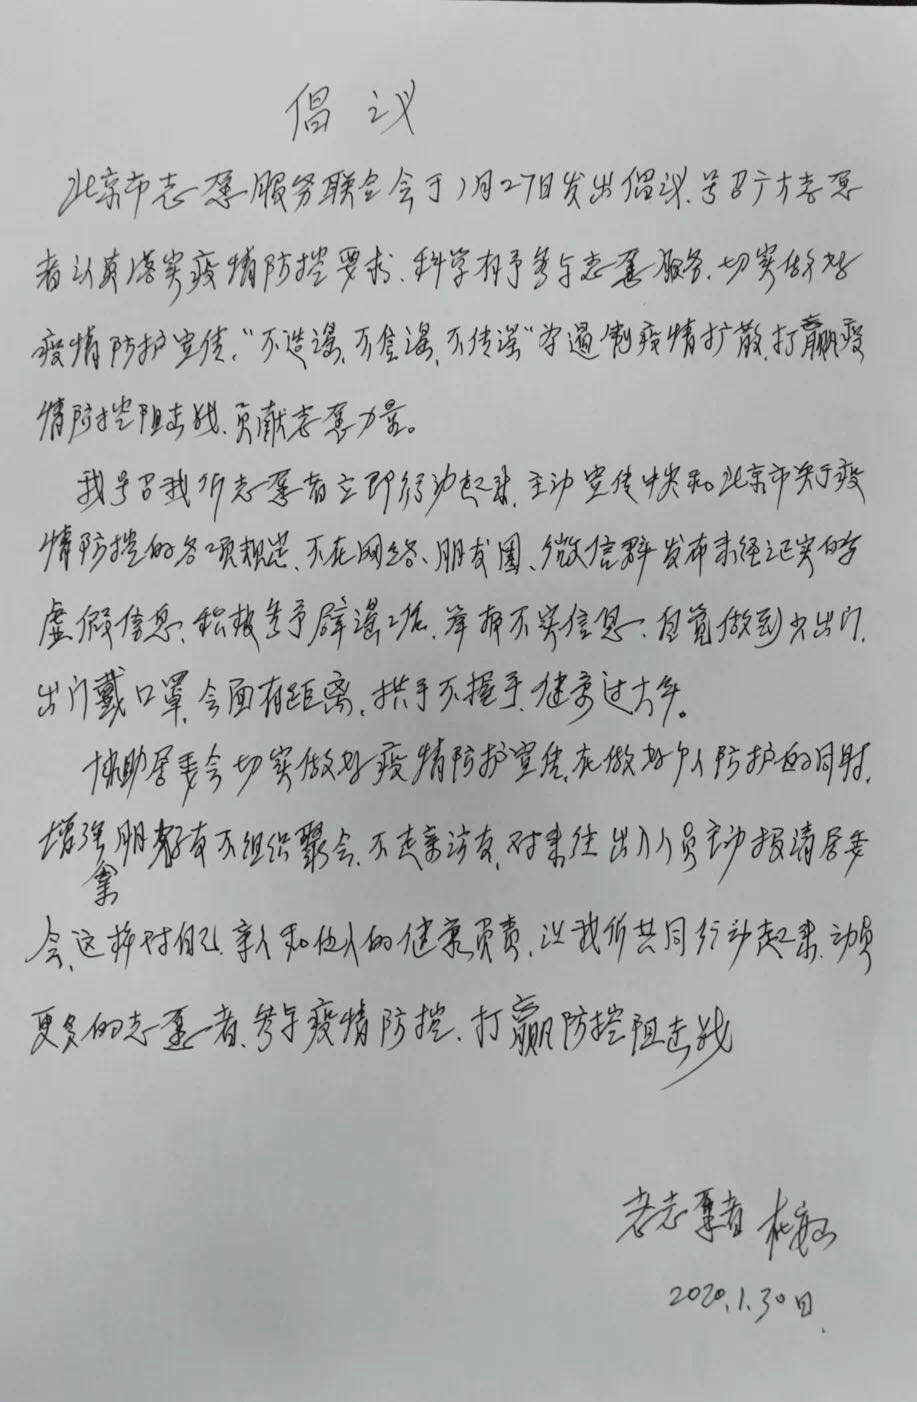 倡议
北京市志愿服务联合会于1月27日发出倡议、号召广大志愿
者认真落实疫情防控要求、科学有序参与志愿服务、切实做好
疫情防护宣传,“不造谣、不信谣、不传谣”为遏制疫情扩散,打赢疫
情防控阻击战、贡献志愿力量。
我号召我们志愿者立即行动起来,主动宣传中央和北京市关于疫
情防控的各项规定、不在网络、朋友圈、微信群发布未经证实的
虚假信息、积极参予辟谣工作、举报不实信息、自觉做到少出门,
出门戴口罩,会面有距离,拱手不握手,健康过大年。
协助居委会切实做好疫情防护宣传,在做好个人防护的同时,
增强朋友不组织聚会,不走亲访友,对来往出入人员主动报请居委
会,这样对自己、亲人和他人的健康负责,让我们共同行动起来,动员
更多的志愿者、参与疫情防控、打赢防控阻击战
老志愿者
2020.1.30日